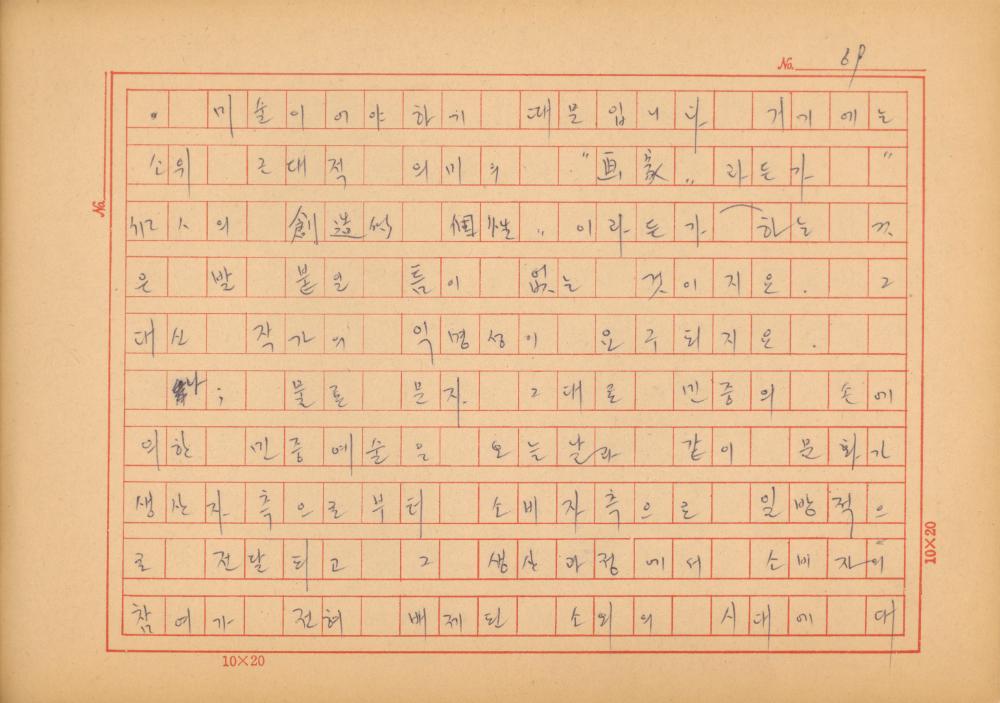 No. 69
. 미술이어야하기 때문입니다 거기에는
소위 근대적 의미의 "画家„ 라든가 "
의 創造的 個性 „ 이라든가 하는 것
은 발 붙일 틈이 없는 것이지요. 그
대신 작가의 익명성이 요구되지요.
나; 물론 문자 그대로 민중의 손에
의한 민중예술은 오늘날과 같이 문화가
생산자측으로부터 소비자측으로 일방적으
로 전달되고 그 생산과정에서 소비자의
참여가 전혀 배제된 소외의 시대에 대
No.
10×20
10×20